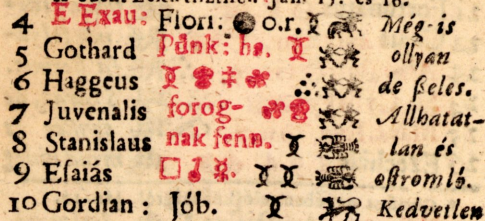 4 E Exau: Flori: o.r. Még-is
5 Gothard Pünk: ollyan
6 Haggeus de ſzeles.
7 Juvenalis forog- Allhatat-
8 Stanislaus nak fenn. lan és
9 Eſaiás oſtromló.
10 Gordian: Jób. Kedvetlen